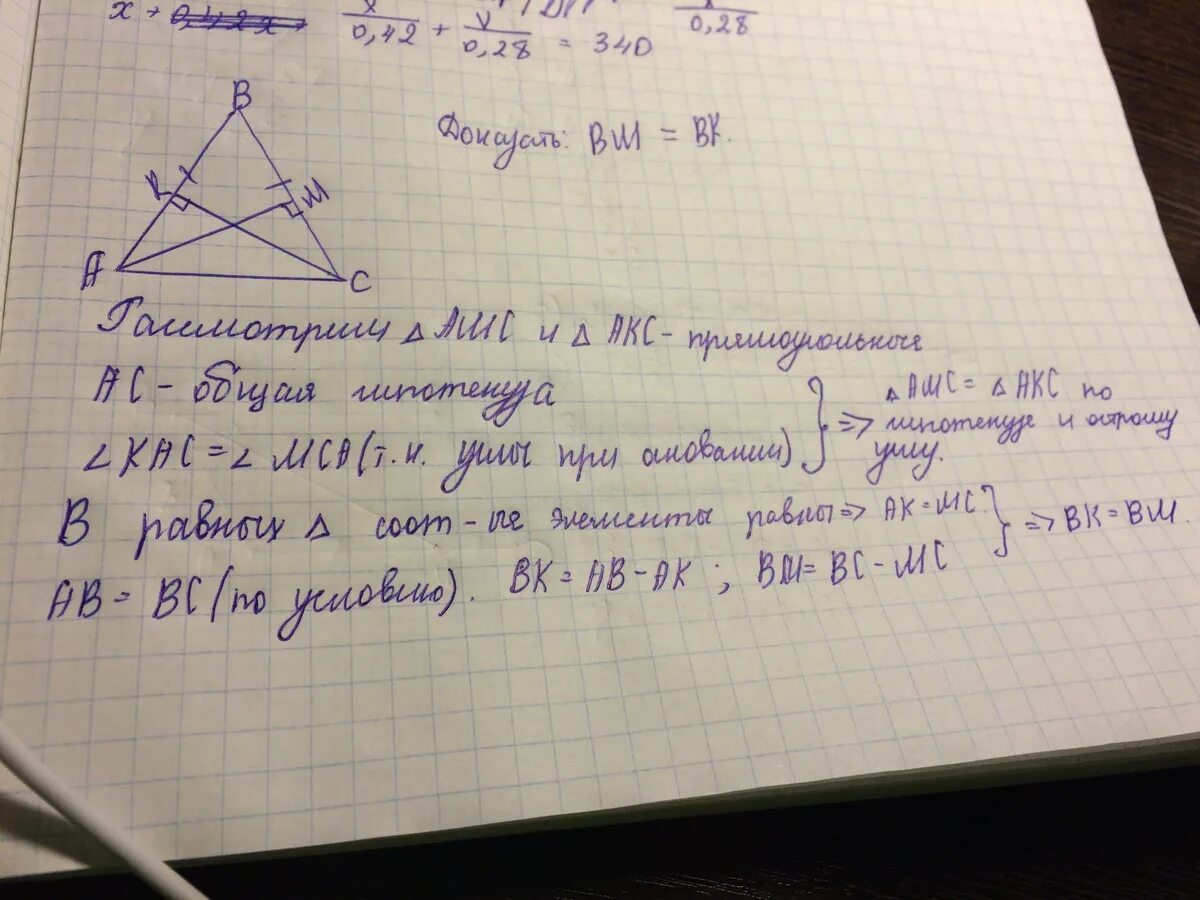 x + 0,42x +
x/0,42 + y/0,28 = 340
0,28
B
K
M
A
C
Доказать: BM = BK.
Рассмотрим △ AMC и △ AKC - прямоугольные
AC - общая гипотенуза
∠KAC = ∠ MCA (т.к. углы при основании)
} => △ AMC = △ AKC по
гипотенузе и острому
углу.
В равных △ соот-ые элементы равны => AK = MC
AB = BC (по условию). BK = AB - AK ; BM = BC - MC
} => BK = BM.